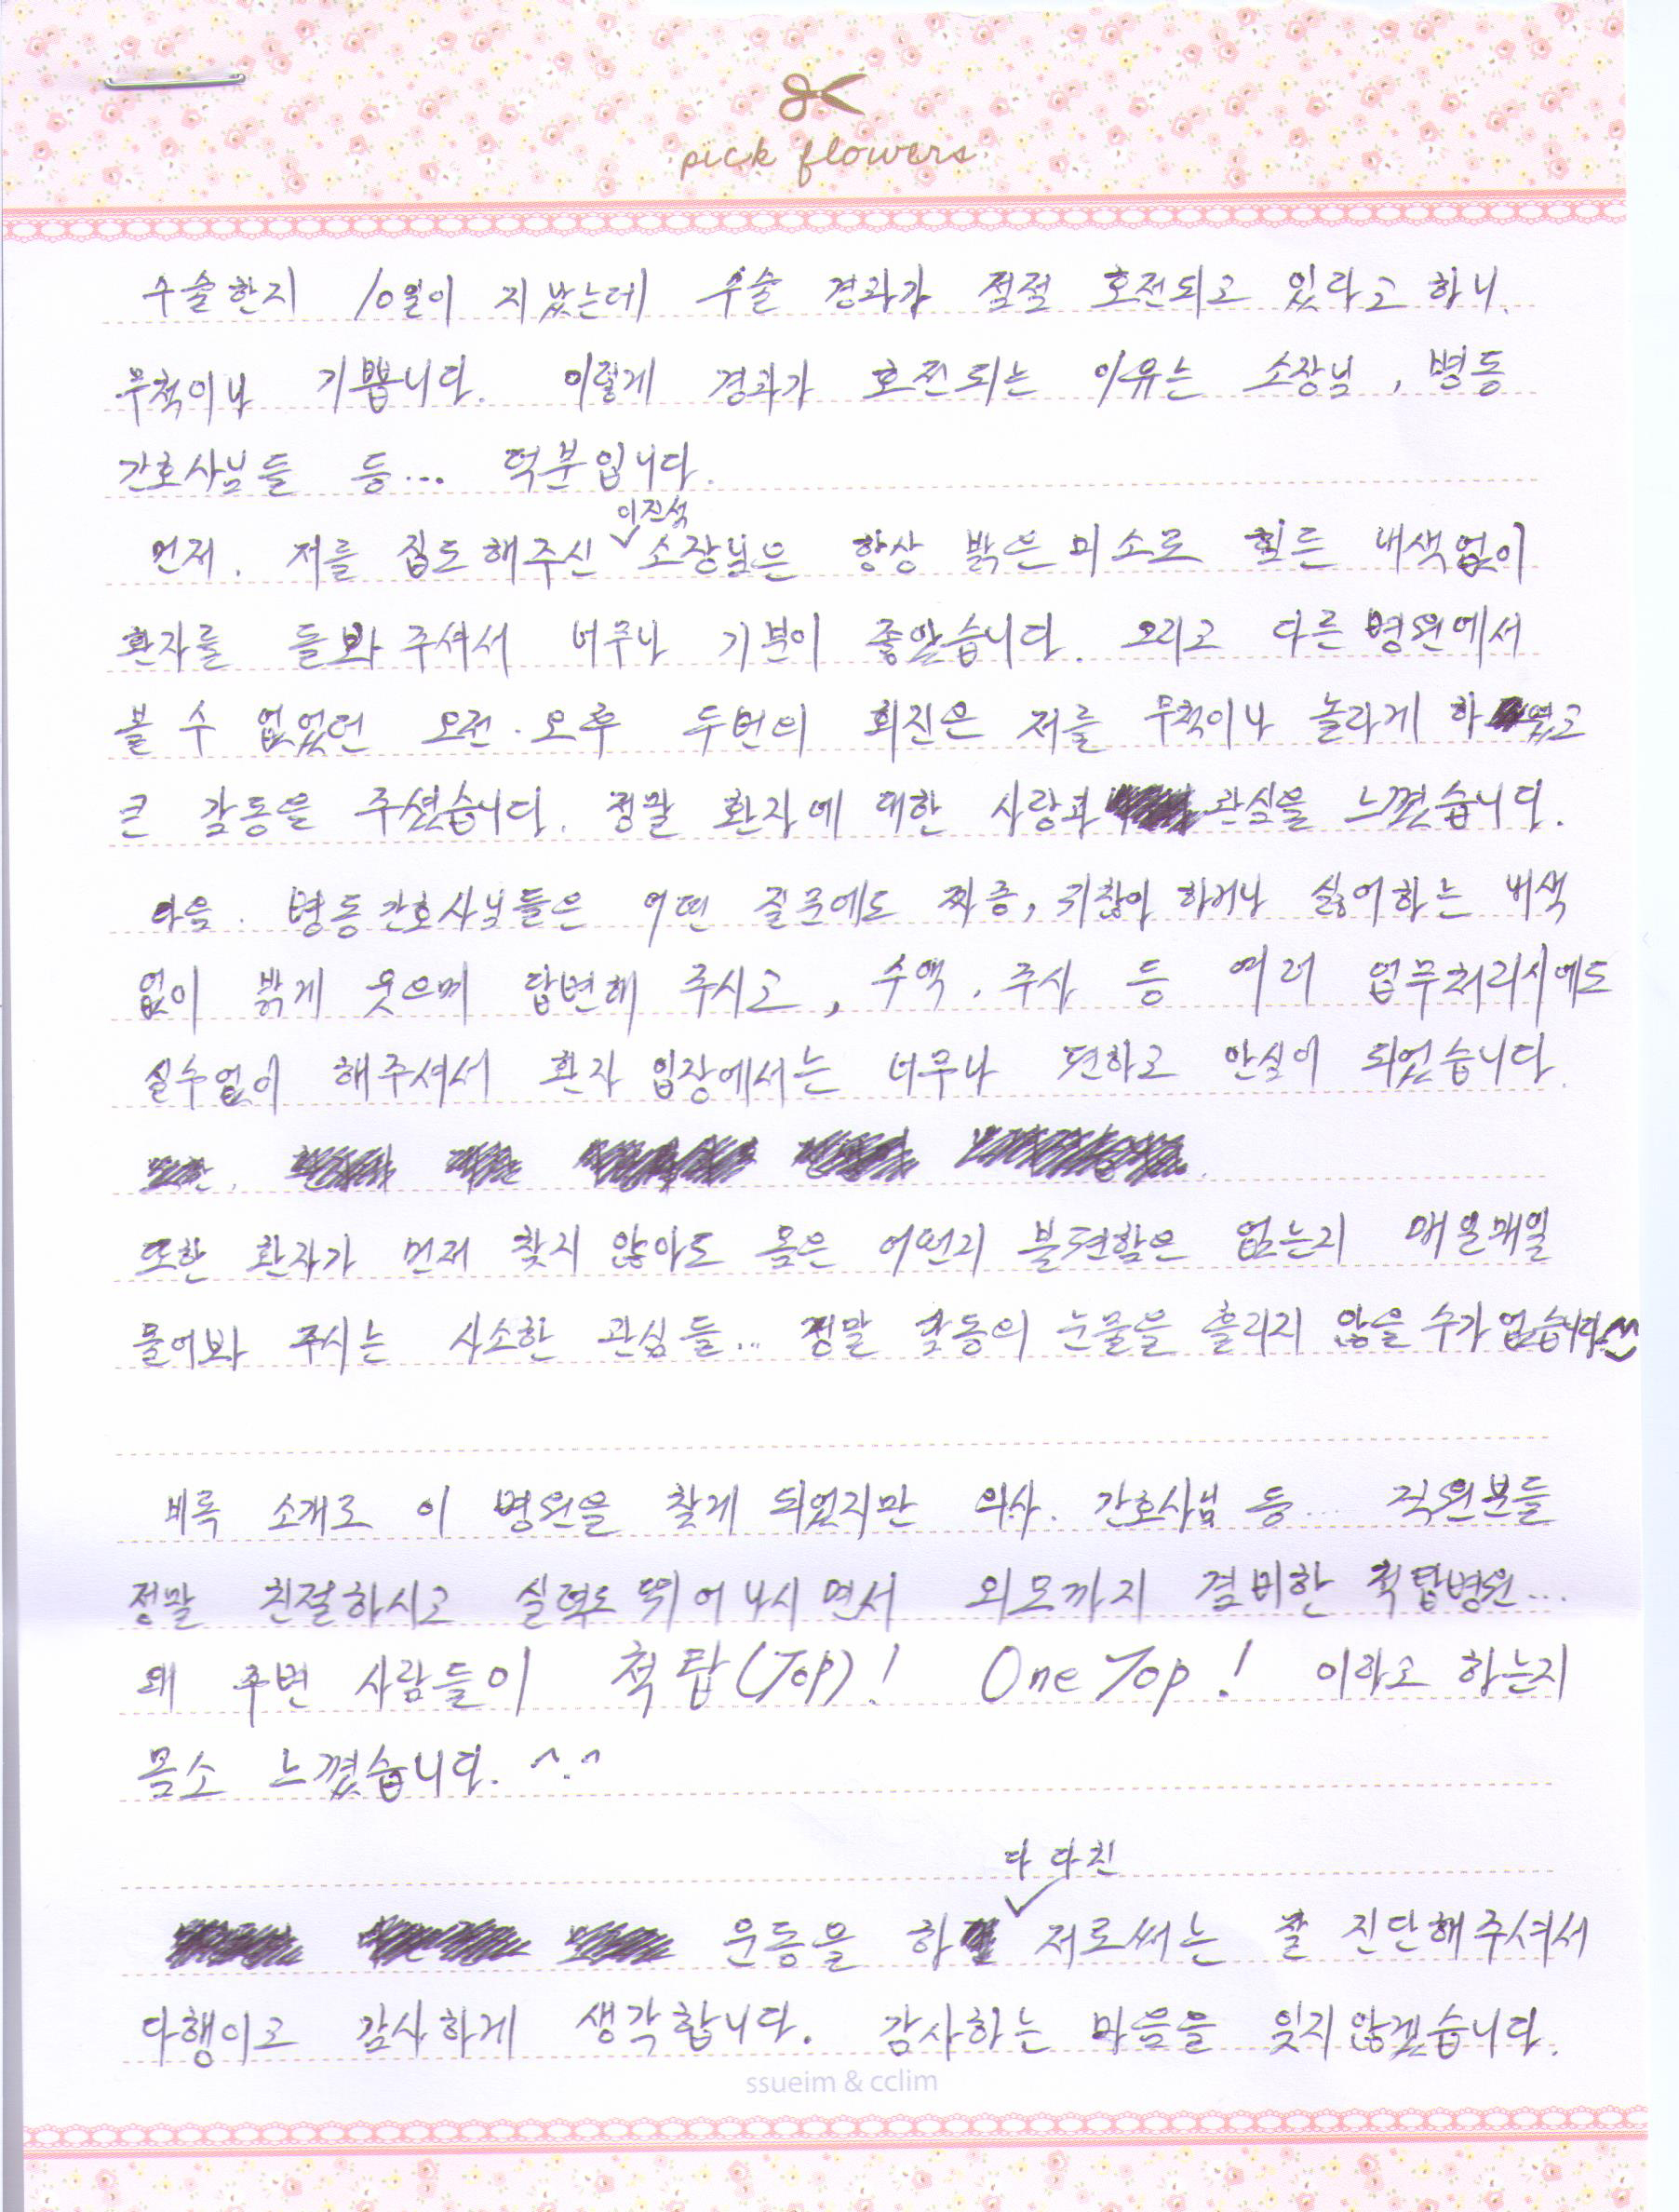 pick flowers
수술한지 10일이 지났는데 수술 경과가 점점 호전되고 있다고 하니.
무척이나 기쁩니다. 이렇게 경과가 호전되는 이유는 소장님, 병동
간호사님들 등... 덕분입니다.
이진석
먼저. 저를 집도해주신 소장님은 항상 밝은 미소로 힘든 내색없이
환자를 돌봐주셔서 너무나 기분이 좋았습니다. 그리고 다른 병원에서
볼 수 없었던 오전·오후 두번의 회진은 저를 무척이나 놀라게 하였고
큰 감동을 주셨습니다. 정말 환자에 대한 사랑과 관심을 느꼈습니다.
다음. 병동간호사님들은 어떤 질문에도 짜증, 귀찮아 하거나 싫어하는 내색
없이 밝게 웃으며 답변해 주시고, 수액. 주사 등 여러 업무처리시에도
실수없이 해주셔서 환자 입장에서는 너무나 편하고 안심이 되었습니다.
또한 환자가 먼저 찾지 않아도 몸은 어떤지 불편함은 없는지 매일매일
물어봐 주시는 사소한 관심들... 정말 감동의 눈물을 흘리지 않을 수가 없습니다.^^
비록 소개로 이 병원을 찾게 되었지만 의사. 간호사님 등... 직원분들
정말 친절하시고 실력도 뛰어나시면서 외모까지 겸비한 척탑병원...
왜 주변 사람들이 척탑(Top)! One Top! 이라고 하는지
몸소 느꼈습니다. ^.^
다 다친
운동을 하 저로써는 잘 진단해주셔서
다행이고 감사하게 생각합니다. 감사하는 마음을 잊지않겠습니다.
ssueim & cclim